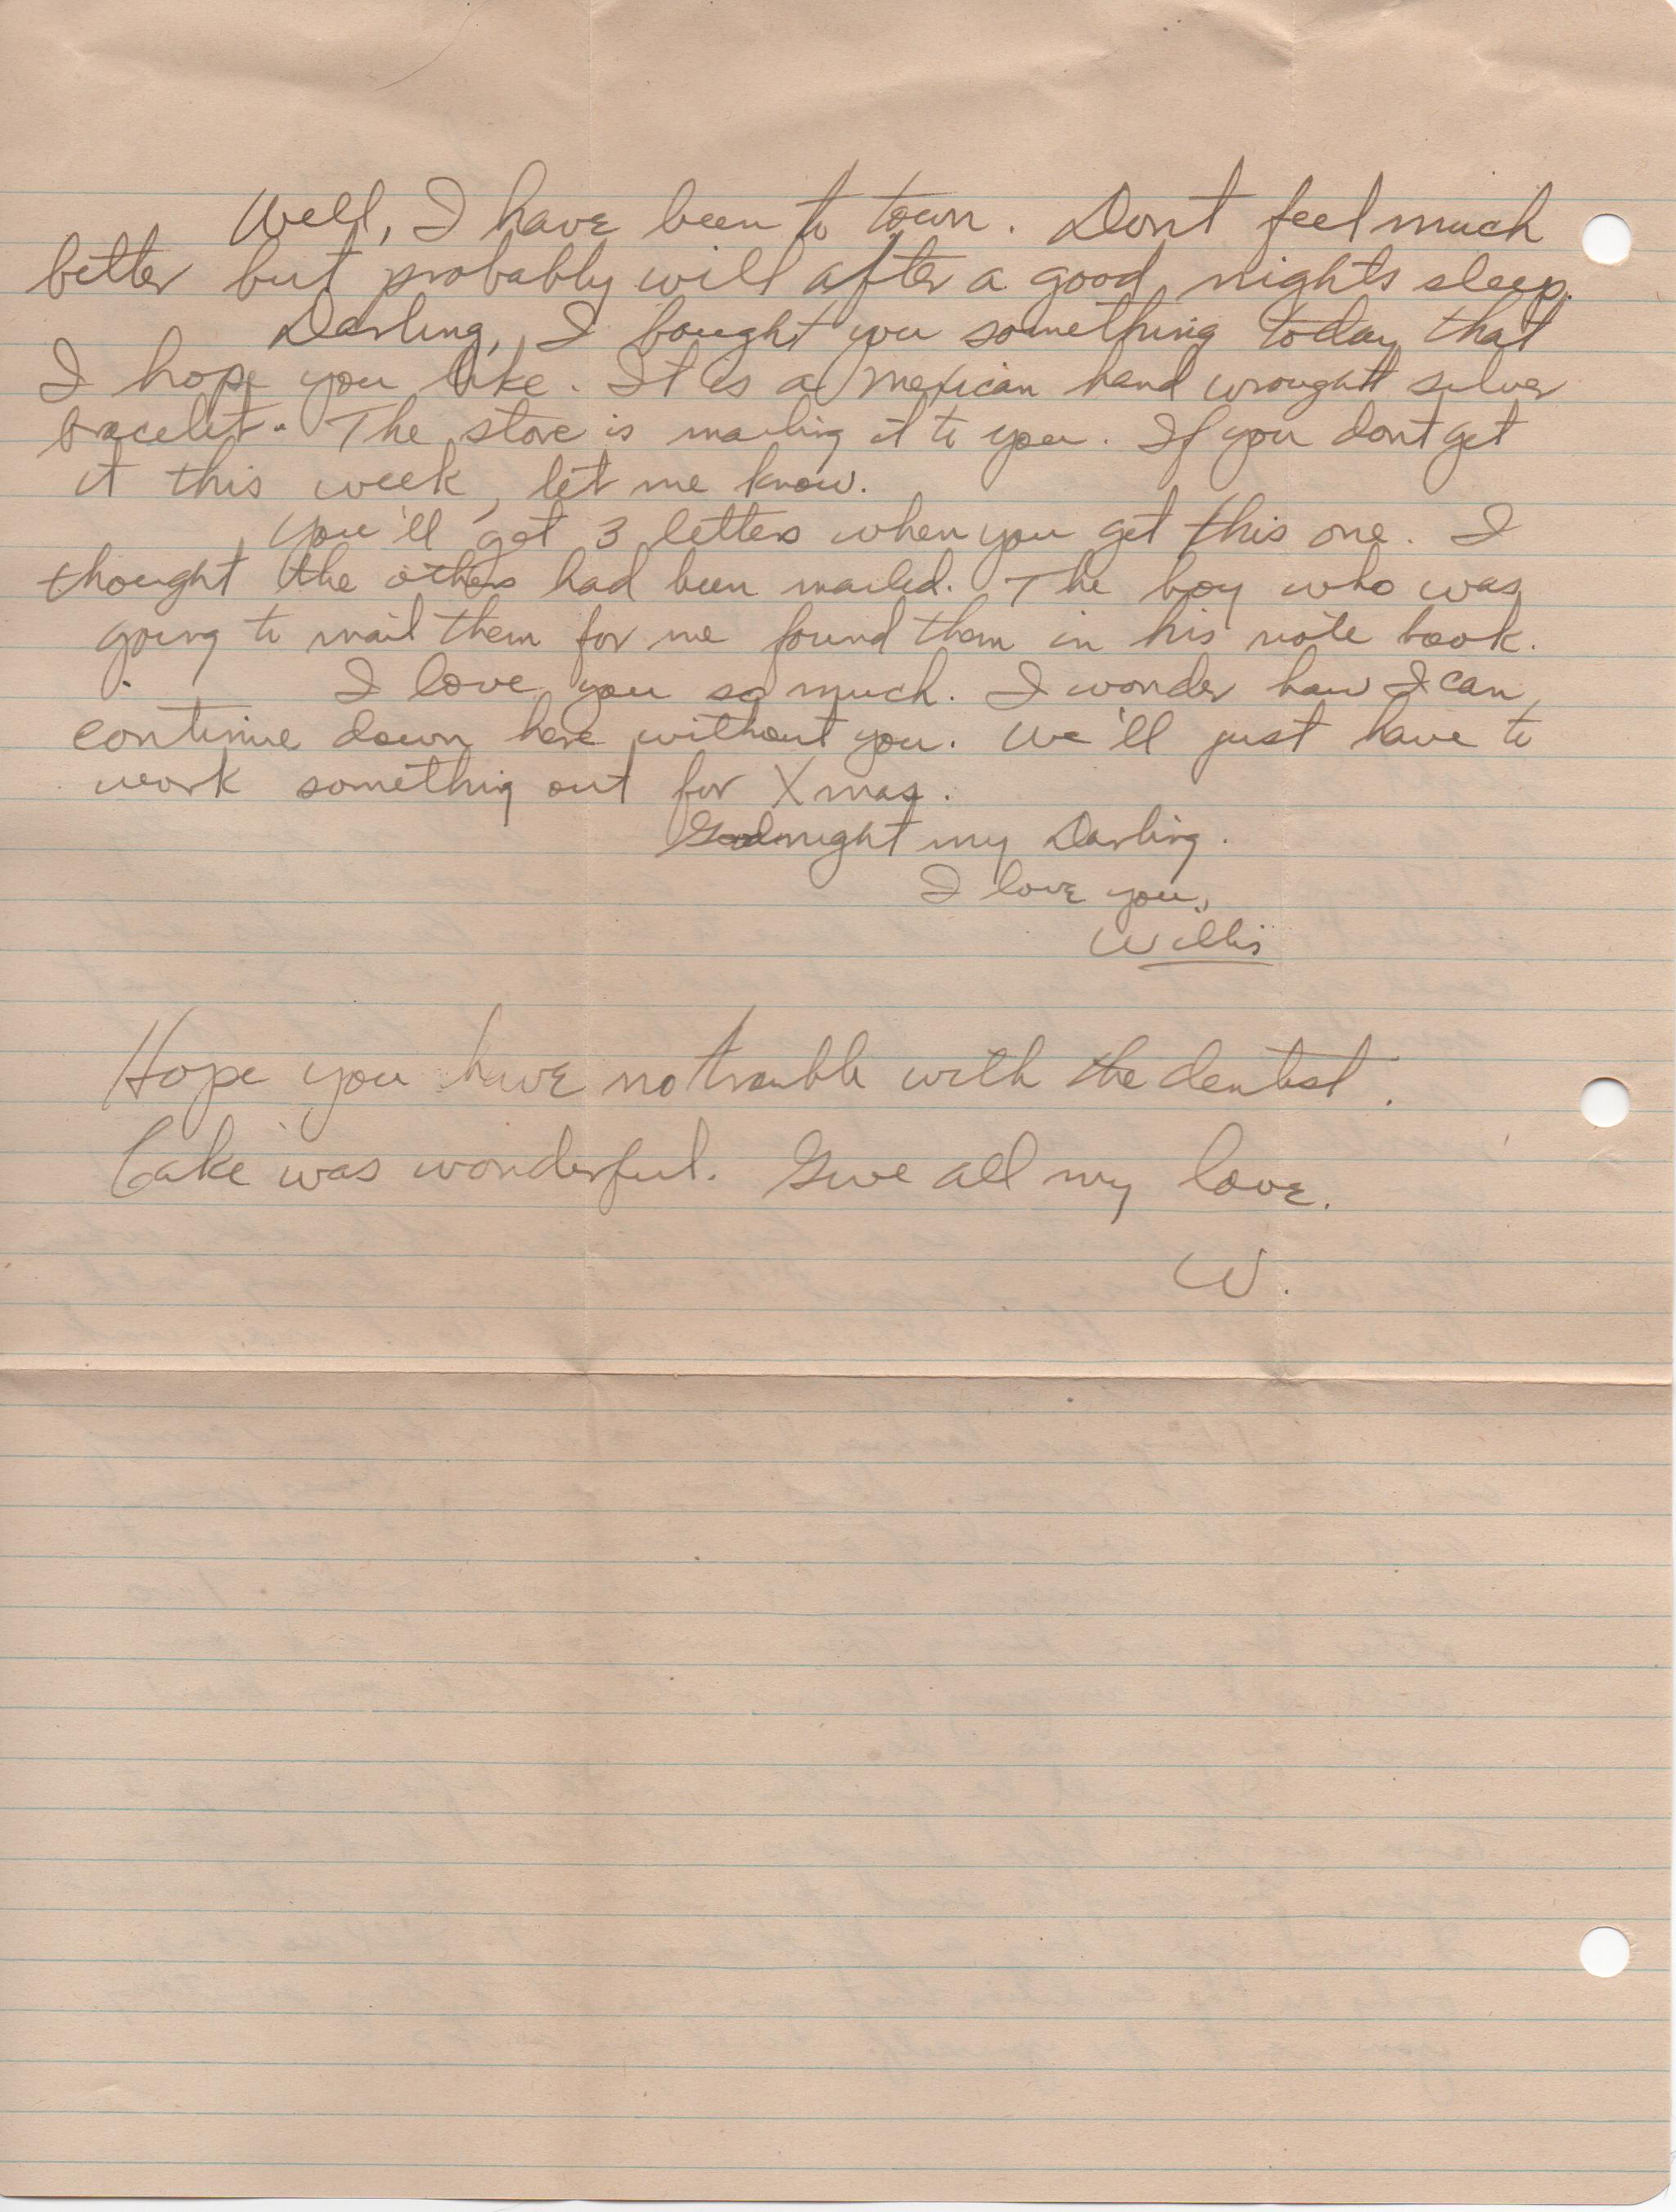 Well, I have been to town. Dont feel much
better but probably will after a good nights sleep.
Darling, I bought you something today that
I hope you like. It is a Mexican hand wrought silver
bracelet. The store is mailing it to you. If you dont get
it this week, let me know.
You'll get 3 letters when you get this one. I
thought the others had been mailed. The boy who was
going to mail them for me found them in his note book.
I love you so much. I wonder how I can
continue down here without you. We'll just have to
work something out for Xmas.
Goodnight my Darling.
I love you,
Willis
Hope you have no trouble with the dentist.
Cake was wonderful. Give all my love.
W.